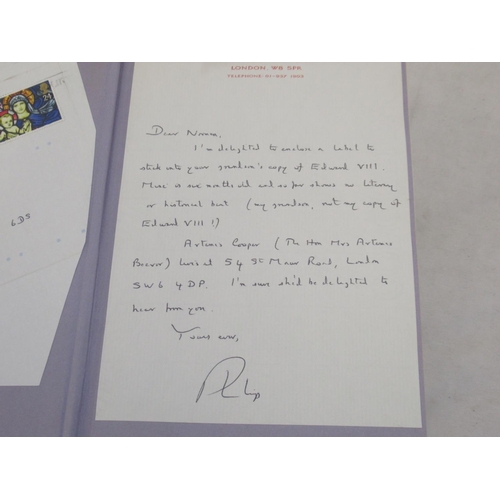 LONDON, W8 5PK
TELEPHONE 01-937
24
6DS
Dear Norman,
I'm delighted to enclose a label to
stick into your grandson's copy of Edward VIII.
Mine is six months old and so far shows no literary
or historical bent (my grandson, not my copy of
Edward VIII!)
Artemis Cooper (The Hon Mrs Artemis
Beevor) lives at 54 St Maur Road, London
SW6 4DP. I'm sure she'd be delighted to
hear from you.
Yours ever,
Philip